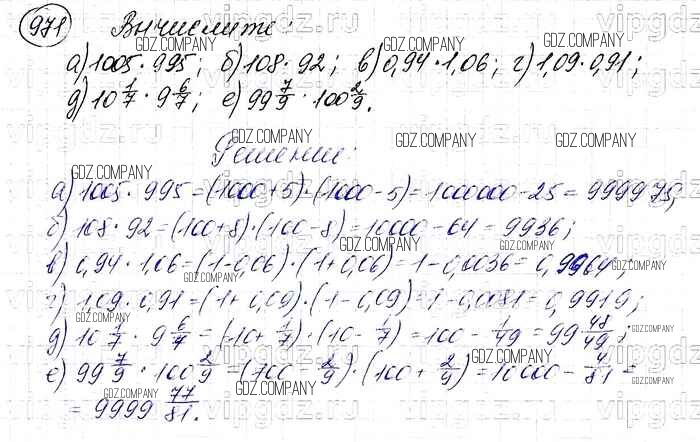 971 Вычислите:
а) 1005 · 995; б) 108 · 92; в) 0,94 · 1,06; г) 1,09 · 0,91;
д) 10 1/7 · 9 6/7; е) 99 7/9 · 100 2/9.
Решение:
а) 1005 · 995 = (1000 + 5) · (1000 - 5) = 1000000 - 25 = 999975;
б) 108 · 92 = (100 + 8) · (100 - 8) = 10000 - 64 = 9936;
в) 0,94 · 1,06 = (1 - 0,06) · (1 + 0,06) = 1 - 0,0036 = 0,9964;
г) 1,09 · 0,91 = (1 + 0,09) · (1 - 0,09) = 1 - 0,0081 = 0,9919;
д) 10 1/7 · 9 6/7 = (10 + 1/7) · (10 - 1/7) = 100 - 1/49 = 99 48/49;
е) 99 7/9 · 100 2/9 = (100 - 2/9) · (100 + 2/9) = 10000 - 4/81 =
= 9999 77/81.